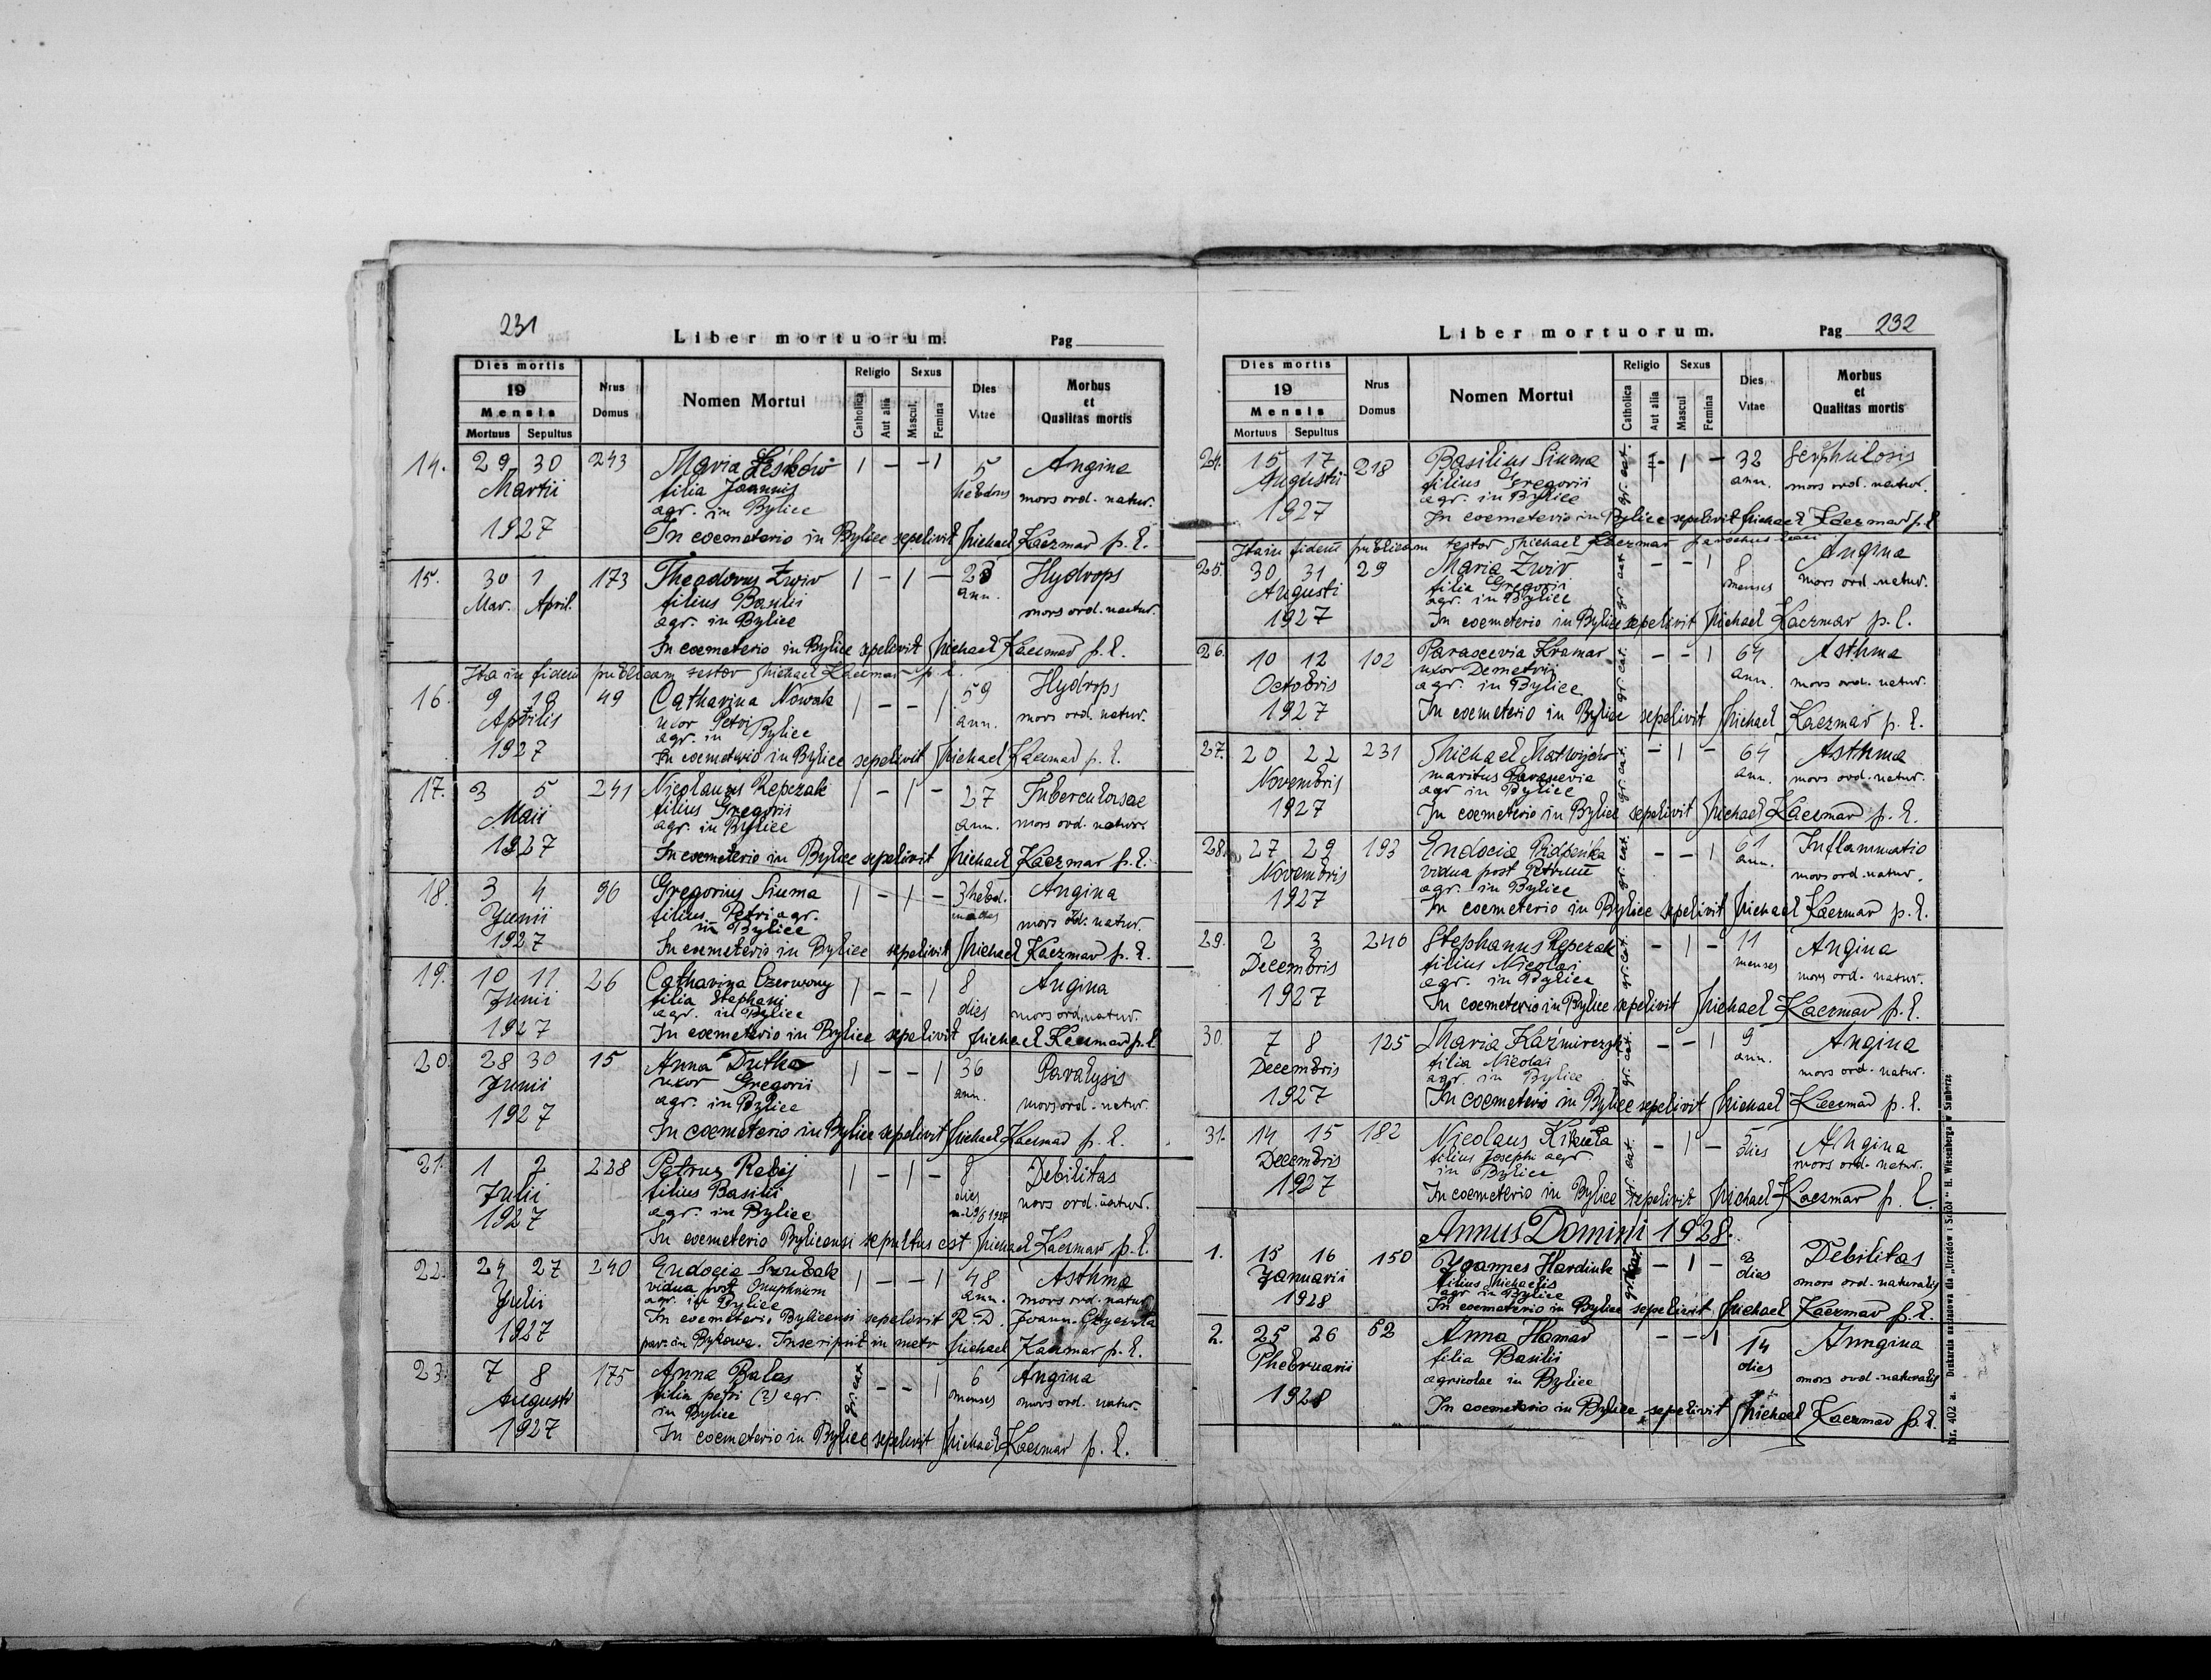 231
Liber mortuorum.
Pag
Dies mortis
19
Mensis
Mortuus Sepultus
Nrus Domus
Nomen Mortui
Religio
Catholica
Aut alia
Sexus
Mascul.
Femina
Dies Vitae
Morbus et Qualitas mortis
14. 29 30 243 Maria Leśków 1 - - 1 5 Angina
Martii filia Joannis hebdms mors ord. natur.
agr. in Bylice
1927 In coemeterio in Bylice sepelivit Michael Kaczmar p. l.
15. 30 1 173 Theodorus Zwir 1 - 1 - Hydrops
Mar. April. filius Basilii ann. mors ord. natur.
agr. in Bylice
In coemeterio in Bylice sepelivit Michael Kaczmar p. l.
Ita in fidem publicam testor Michael Kaczmar p. l.
16. 9 49 Catharina Nowak 1 - - 1 59 Hydrops
Aprilis uxor Petri ann. mors ord. natur.
agr. in Bylice
1927 In coemeterio in Bylice sepelivit Michael Kaczmar p. l.
17. 3 5 241 Nicolaus Repczak 1 - 1 - 27 Tuberculosae
Maii filius Gregorii ann. mors ord. natur.
agr. in Bylice
1927 In coemeterio in Bylice sepelivit Michael Kaczmar p. l.
18. 3 4 96 Gregorius Siuma 1 - 1 - 3 hebd. Angina
Junii filius Petri agr. mors ord. natur.
in Bylice
1927 In coemeterio in Bylice sepelivit Michael Kaczmar p. l.
19. 10 11 26 Catharina Czerwony 1 - - 1 8 Angina
Junii filia Stephani dies mors ord. natur.
agr. in Bylice
1927 In coemeterio in Bylice sepelivit Michael Kaczmar p. l.
20. 28 30 15 Anna Dutko 1 - - 1 36 Paralysis
Junii uxor Gregorii ann. mors ord. natur.
agr. in Bylice
1927 In coemeterio in Bylice sepelivit Michael Kaczmar p. l.
21. 1 2 228 Petrus Rebij 1 - 1 - 8 Debilitas
Julii filius Basilii dies mors ord. natur.
1927 agr. in Bylice
In coemeterio Bylicensi sepultus est Michael Kaczmar p. l.
22. 24 27 240 Eudocia 1 - - 1 48 Asthma
Julii vidua post Onuphrium ann. mors ord. natur.
agr. in Bylice
1927 In coemeteri. Bylicensi sepelivit R. D. Joann.
par. in Bykowe. Inscripsit in metr Michael Kaczmar p. l.
23. 7 8 175 Anna Balas gr. cat - - 1 6 Angina
Augusti filia petri (?) agr. menses mors ord. natur.
in Bylice
1927 In coemeterio in Bylice sepelivit Michael Kaczmar p. l.
Liber mortuorum.
Pag 232
Dies mortis
19
Mensis
Mortuus Sepultus
Nrus Domus
Nomen Mortui
Religio
Catholica
Aut alia
Sexus
Mascul
Femina
Dies Vitae
Morbus et Qualitas mortis
24. 15 17 218 Basilius Siuma gr. cat. - 1 - 32
Augusti filius Gregorii ann. mors ord. natur.
agr. in Bylice
1927 In coemeterio in Bylice sepelivit Michael Kaczmar p. l.
Ita in fidem publicam testor Michael Kaczmar parochus loci
25. 30 31 29 Maria Zwir gr. cat - - 1 8 Angina
Augusti filia Gregorii menses mors ord. natur.
agr. in Bylice
1927 In coemeterio in Bylice sepelivit Michael Kaczmar p. l.
26. 10 12 102 Parascevia Kramar gr. cat. - - 1 64 Asthma
Octobris uxor Demetrii ann. mors ord. natur.
agr. in Bylice
1927 In coemeterio in Bylice sepelivit Michael Kaczmar p. l.
27. 20 22 231 Michael Matwijców gr. cat. - 1 - 64 Asthma
Novembris maritus Parascevia ann. mors ord. natur.
agr in Bylice
1927 In coemeterio in Bylice sepelivit Michael Kaczmar p. l.
28. 27 29 193 Eudocia gr. cat. - - 1 61 Inflammatio
Novembris vidua post Petrum ann. mors ord. natur.
agr. in Bylice
1927 In coemeterio in Bylice sepelivit Michael Kaczmar p. l.
29. 2 3 246 Stephanus Repczak gr. cat. - 1 - 11 Angina
Decembris filius Nicolai menses mors ord. natur.
agr. in Bylice
1927 In coemeterio in Bylice sepelivit Michael Kaczmar p. l.
30. 7 8 125 Maria gr. cat. - - 1 9 Angina
Decembris filia Nicolai ann. mors ord. natur.
agr. in Bylice
1927 In coemeterio in Bylice sepelivit Michael Kaczmar p. l.
31. 14 15 182 Nicolaus Kikuła gr. cat. - 1 - 5 Angina
Decembris filius Josephi agr. dies mors ord. natur.
in Bylice
1927 In coemeterio in Bylice sepelivit Michael Kaczmar p. l.
Annus Domini 1928.
1. 15 16 150 Yoannes Hardiuk - 1 - dies Debilitas
Januarii filius Michaelis mors ord. naturalis
agr in Bylice
1928 In coemeterio in Bylice sepelivit Michael Kaczmar p. l.
2. 25 26 52 Anna Hamar - - 1 14 Anngina
Phebruarii filia Basilii dies mors ord. naturalis
agricolae in Bylice
1928 In coemeterio in Bylice sepelivit Michael Kaczmar p. l.
Nr. 402 a. Drukarnia nakładowa dla „Urzędów i Szkół" H. Wiesenberga w Samborze